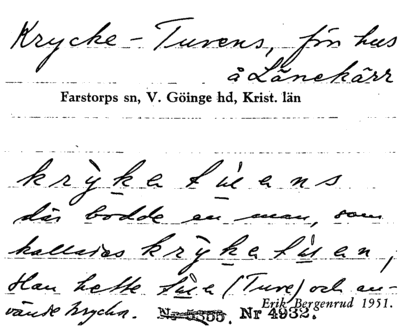 Krycke-Tuvens, förr hus
å Länekärr
Farstorps sn, V. Göinge hd, Krist. län
krỳkatúens
där bodde en man, som
kallades krỳkatúen,
Han hette túe (Tuve) och an-
vände krycka.
Erik Bergenrud 1951.
Nr 4932.